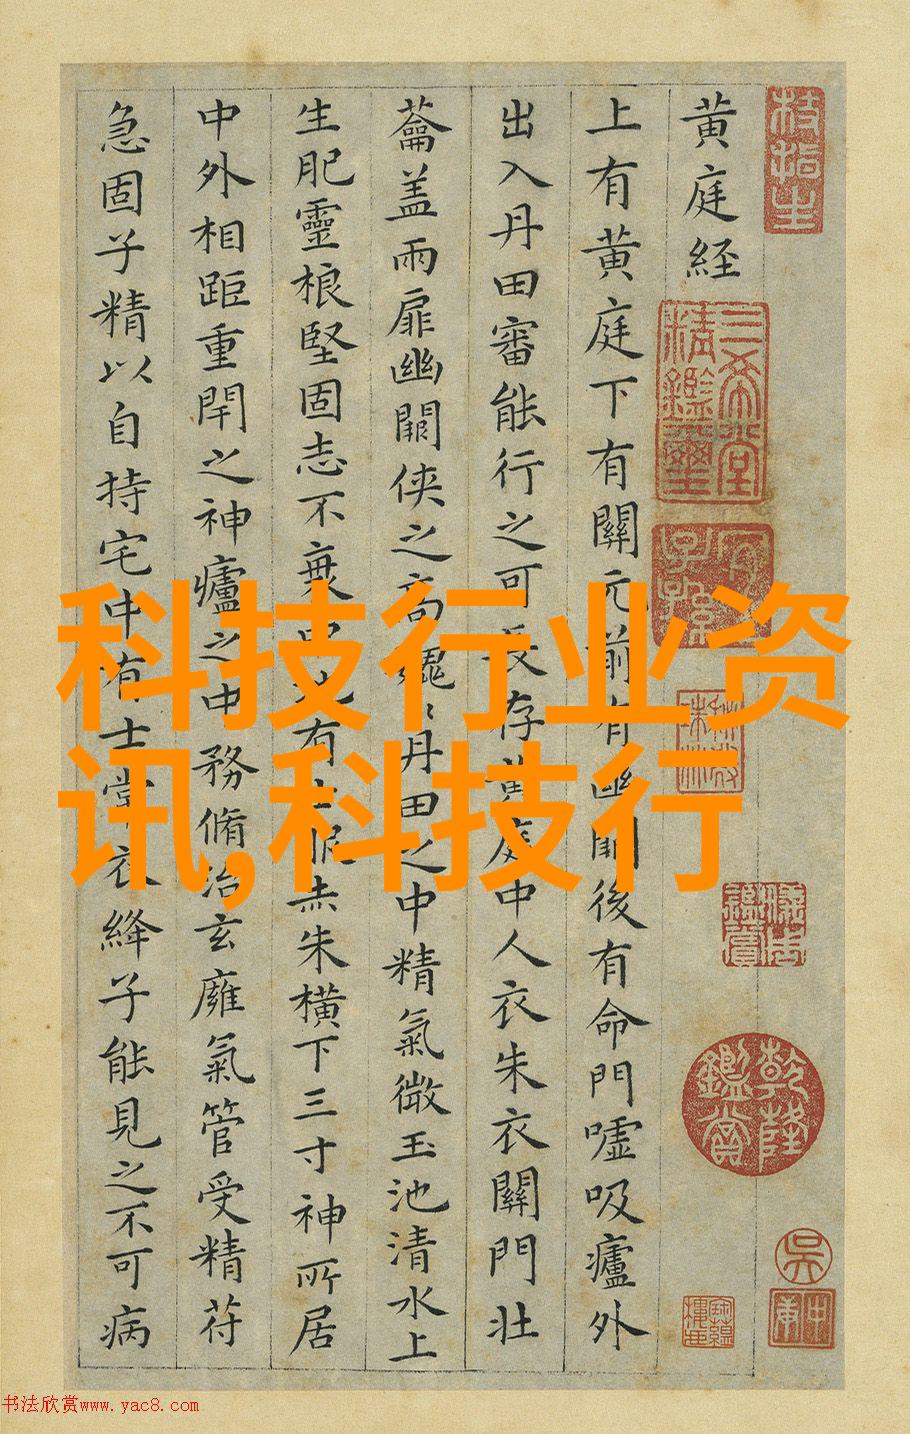 黄庭経
上有黄庭下有關元前有幽闕後有命門噓吸廬外
出入丹田審能行之可長存黄庭中人衣朱衣關門壯
蘥盖兩扉幽闕俠之高魏〻丹田之中精氣微玉池清水上
生肥靈根堅固志不衰中池有士服赤朱横下三寸神所居
中外相距重閇之神廬之中務脩治玄廱氣管受精苻
急固子精以自持宅中有士常衣絳子能見之不可病
三希堂精鑑璽
乾隆鑑賞
吳
科技行业资
讯,科技行
书法欣赏www.yac8.com